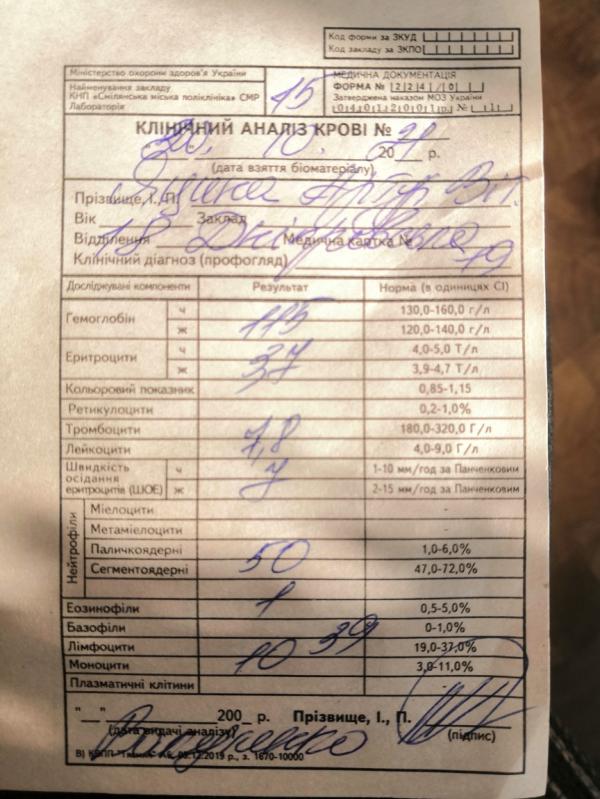 Код форми за ЗКУД
Код закладу за ЗКПО
Міністерство охорони здоров'я України
Найменування закладу
КНП «Смілянська міська поліклініка» СМР
Лабораторія
15
МЕДИЧНА ДОКУМЕНТАЦІЯ
ФОРМА № 224/0
Затверджена наказом МОЗ України
04012001р. № 1
КЛІНІЧНИЙ АНАЛІЗ КРОВІ № 21
" " 10. 2021 р.
(дата взяття біоматеріалу)
Прізвище, І., П. Артур Віт.
Вік Заклад
Відділення 18 Медична картка №
Клінічний діагноз (профогляд) 79
Досліджувані компоненти Результат Норма (в одиницях СІ)
Гемоглобін ч 130,0-160,0 г/л
ж 115 120,0-140,0 г/л
Еритроцити ч 4,0-5,0 Т/л
ж 37 3,9-4,7 Т/л
Кольоровий показник 0,85-1,15
Ретикулоцити 0,2-1,0%
Тромбоцити 180,0-320,0 Г/л
Лейкоцити 7,8 4,0-9,0 Г/л
Швидкість осідання еритроцитів (ШОЕ) ч 7 1-10 мм/год за Панченковим
ж 2-15 мм/год за Панченковим
Нейтрофіли
Мієлоцити -
Метамієлоцити -
Паличкоядерні 1,0-6,0%
Сегментоядерні 50 47,0-72,0%
Еозинофіли 1 0,5-5,0%
Базофіли 0-1,0%
Лімфоцити 39 19,0-37,0%
Моноцити 10 3,0-11,0%
Плазматичні клітини -
"__" 200_ р. Прізвище, І., П.
(дата видачі аналізу) (підпис)
05.12.2019 р., з. 1670-10000